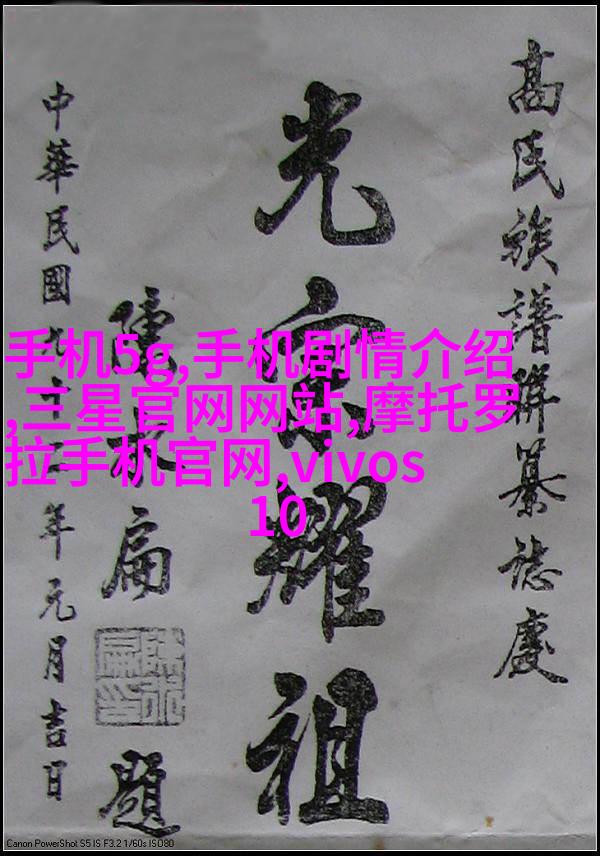 高氏族譜聯纂誌慶
光宗耀祖
陳水扁
題
中華民國九十二年元月吉日
手机5g,手机剧情介绍
,三星官网网站,摩托罗
拉手机官网,vivos
10
Canon PowerShot S5 IS F3.2 1/60s ISO80